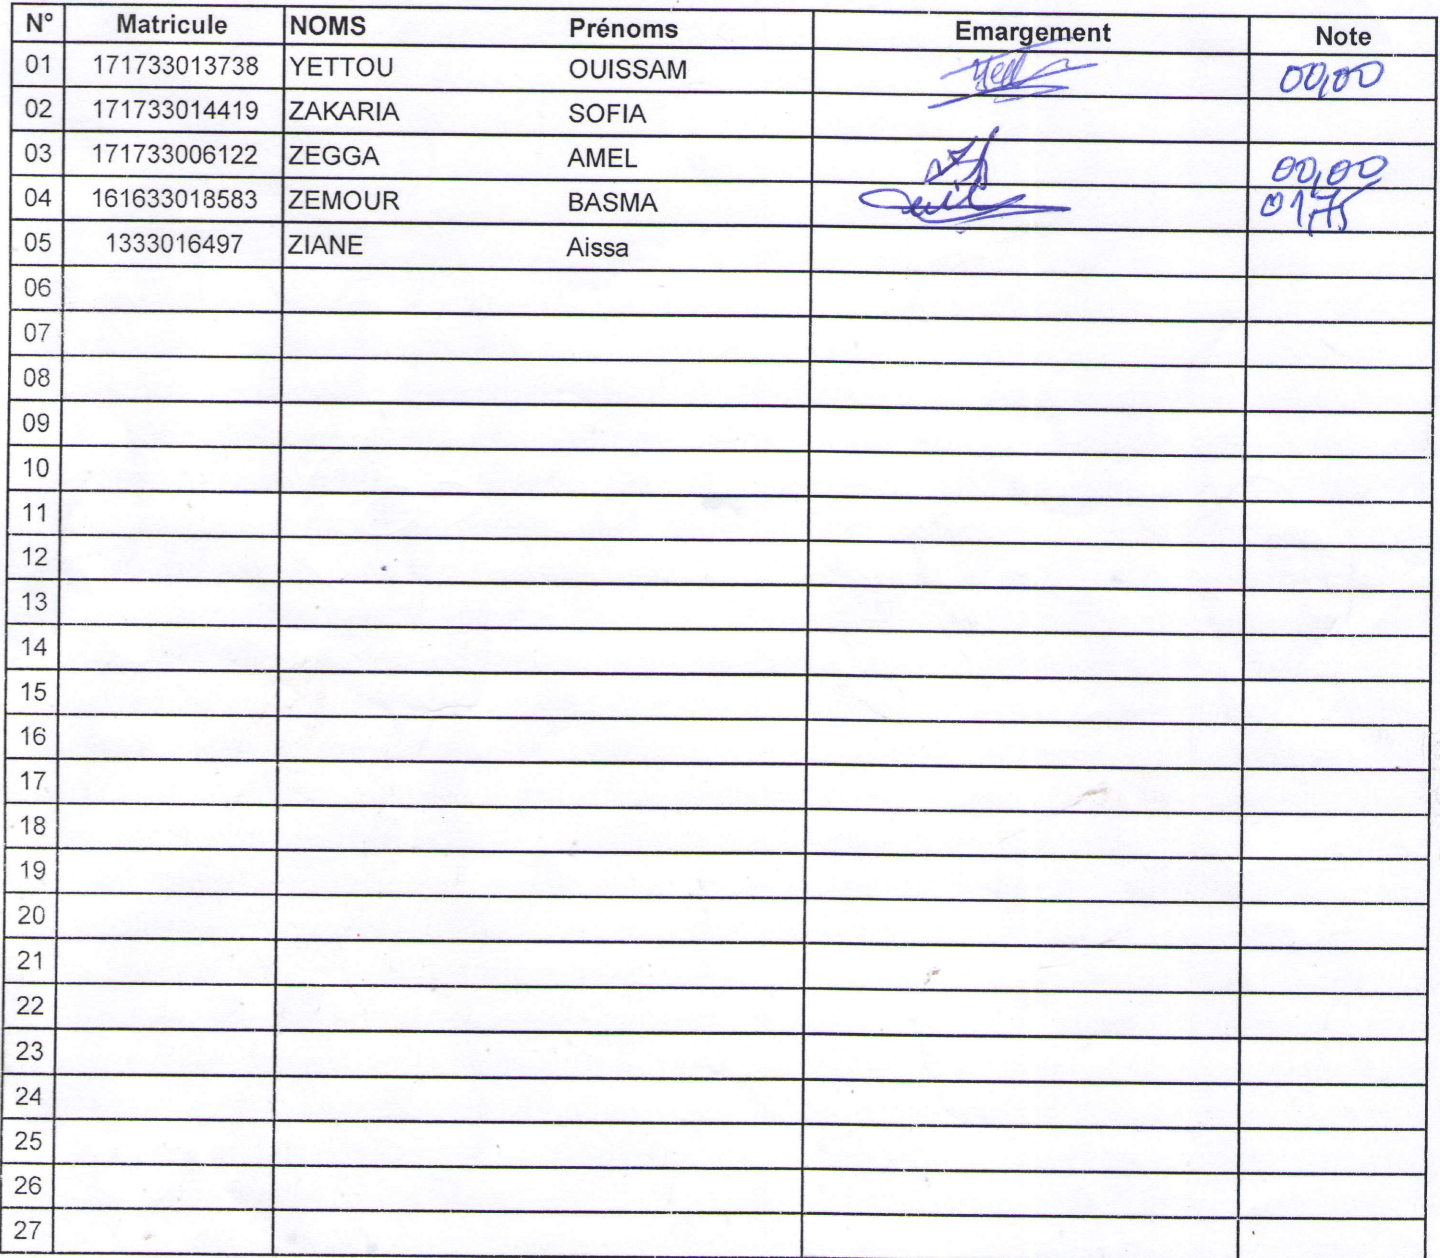 N° Matricule NOMS Prénoms Emargement Note
01 171733013738 YETTOU OUISSAM 00,00
02 171733014419 ZAKARIA SOFIA
03 171733006122 ZEGGA AMEL 00,00
04 161633018583 ZEMOUR BASMA 01,75
05 1333016497 ZIANE Aissa
06
07
08
09
10
11
12
13
14
15
16
17
18
19
20
21
22
23
24
25
26
27